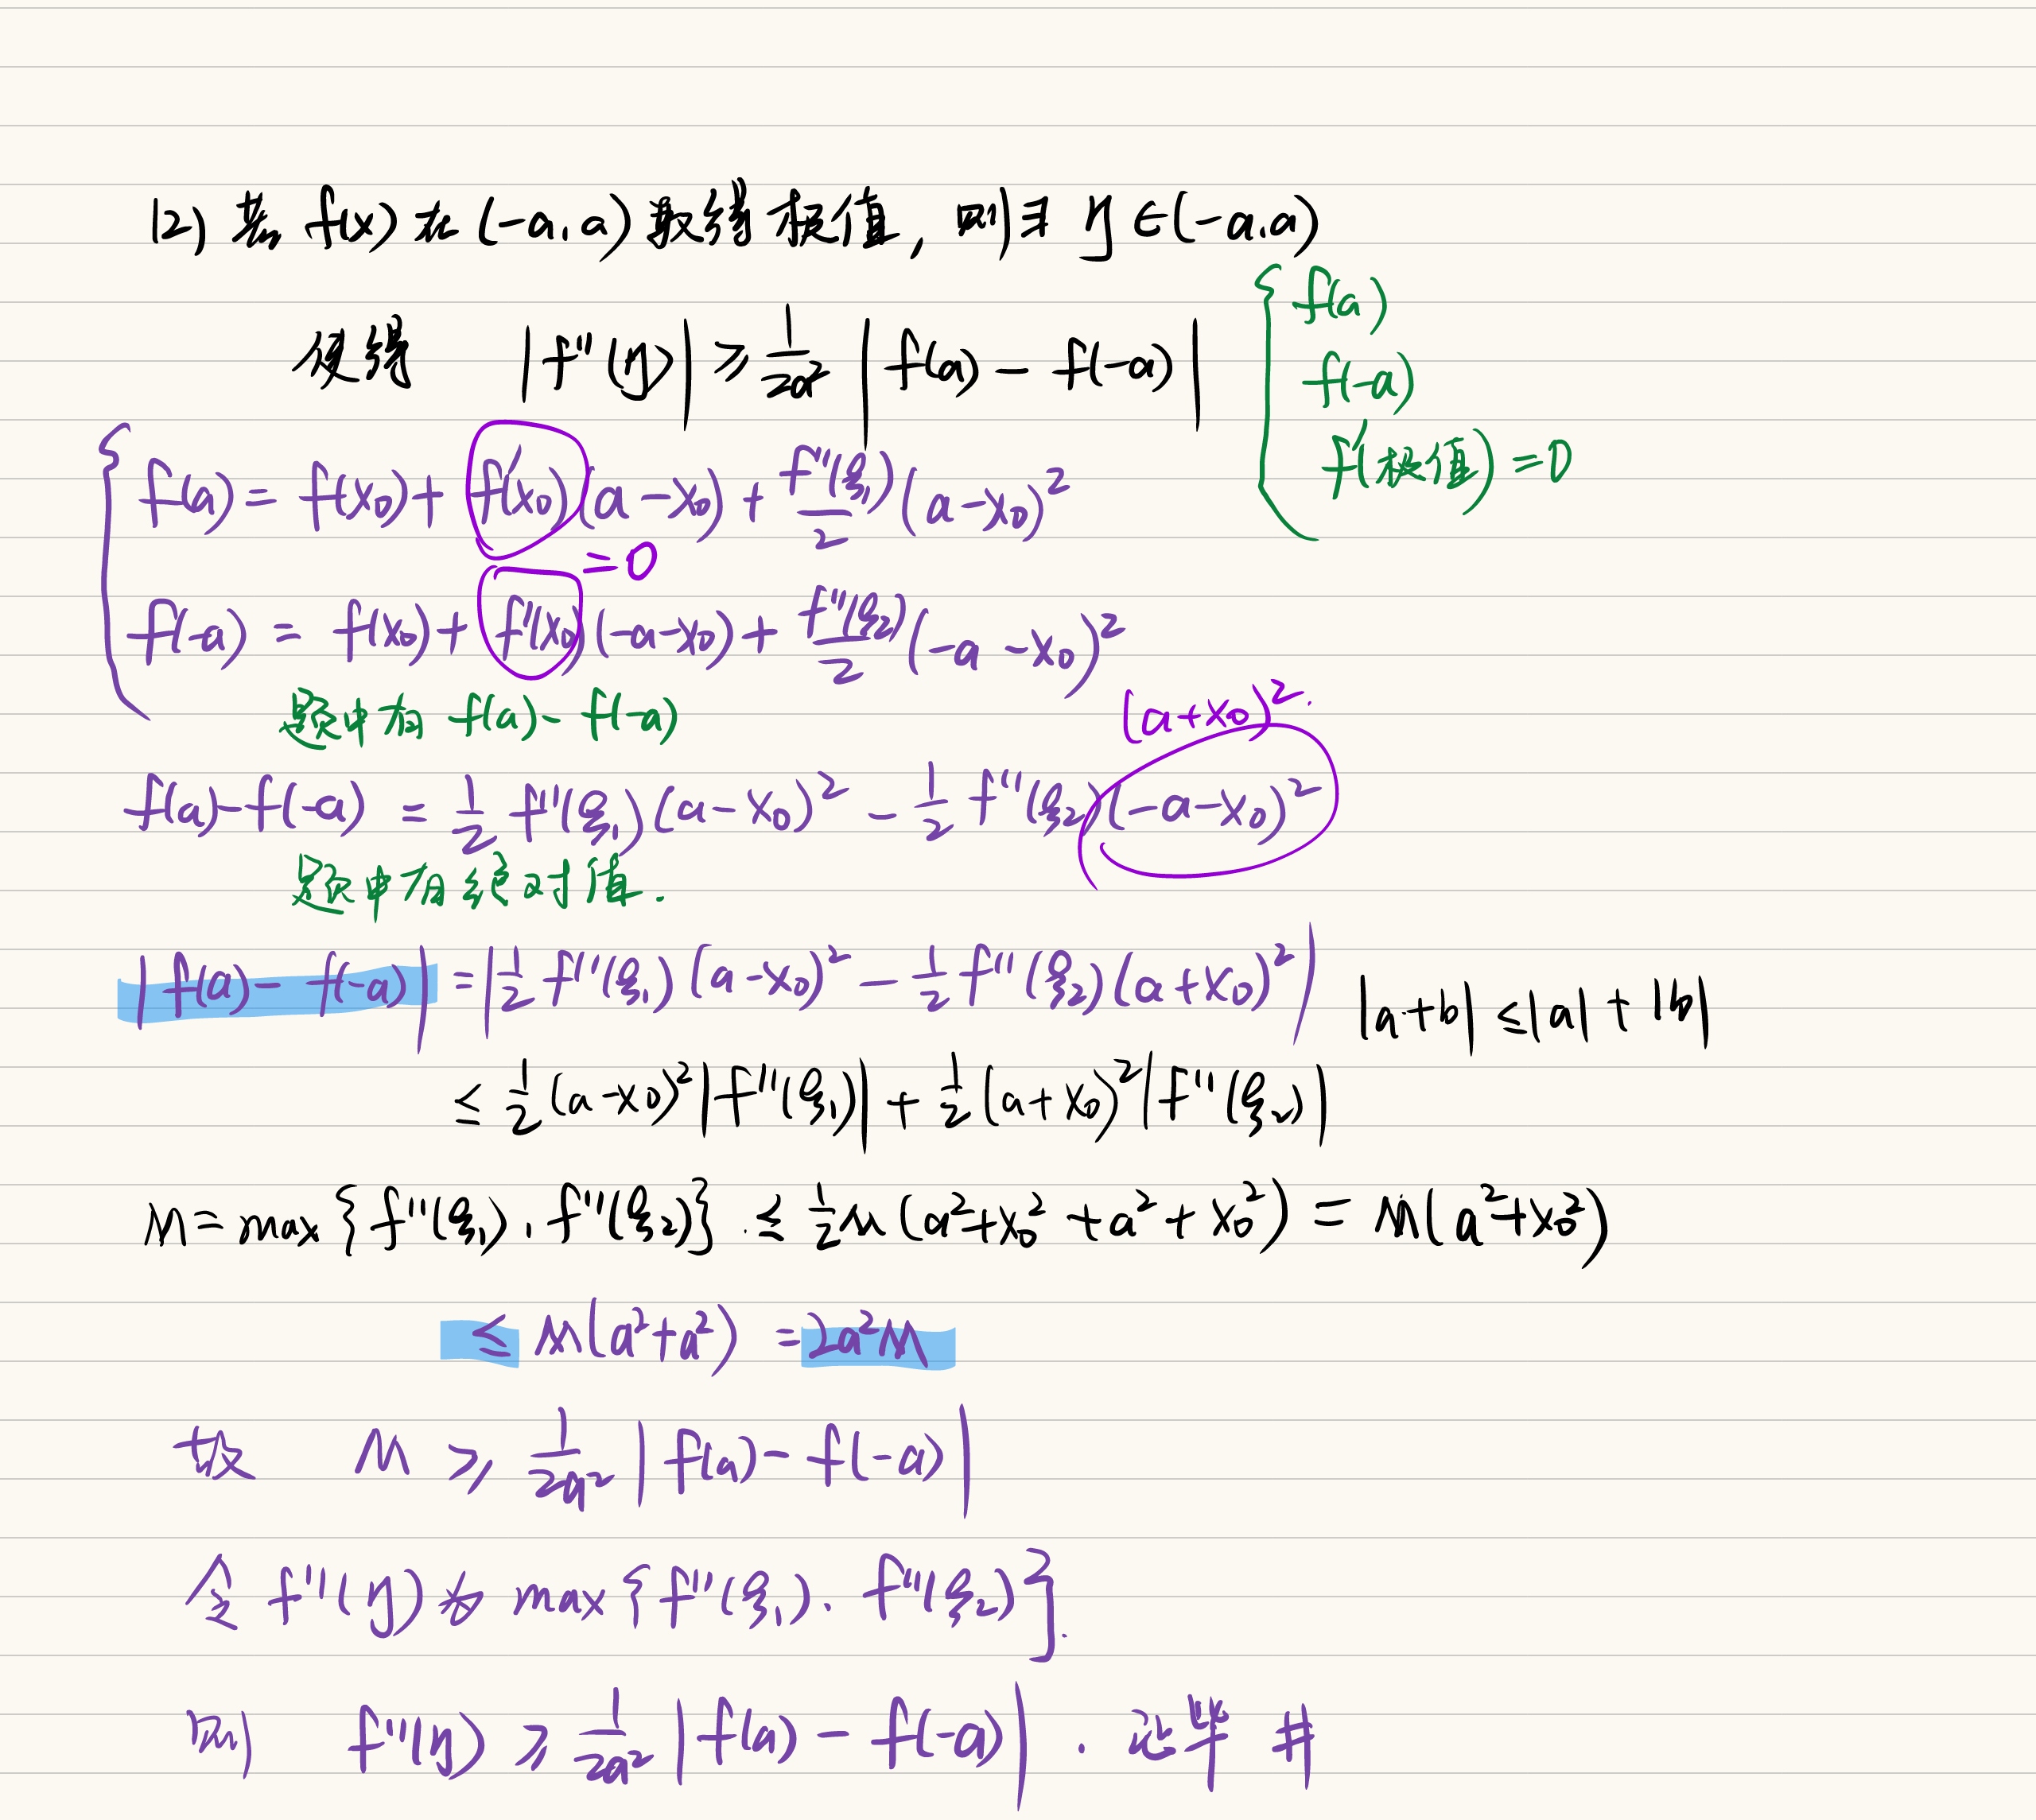 (2) 若 f(x) 在 (-a,a) 取得极值, 则∃ η∈(-a,a)
使得 |f''(η)| ≥ 1/2a² |f(a) - f(-a)|
{ f(a)
f(-a)
f'(极值) = 0
{ f(a) = f(x₀) + f'(x₀)(a-x₀) + f''(ξ₁)/2 (a-x₀)²
=0
f(-a) = f(x₀) + f'(x₀)(-a-x₀) + f''(ξ₂)/2 (-a-x₀)²
题中有 f(a) - f(-a)
(a+x₀)².
f(a)-f(-a) = 1/2 f''(ξ₁)(a-x₀)² - 1/2 f''(ξ₂)(-a-x₀)²
题中有绝对值.
|f(a) - f(-a)| = |1/2 f''(ξ₁)(a-x₀)² - 1/2 f''(ξ₂)(a+x₀)²|
|a+b| ≤ |a| + |b|
≤ 1/2 (a-x₀)² |f''(ξ₁)| + 1/2 (a+x₀)² |f''(ξ₂)|
M = max {f''(ξ₁), f''(ξ₂)}. ≤ 1/2 M (a²+x₀²+a²+x₀²) = M(a²+x₀²)
≤ M(a²+a²) = 2a²M
故 M ≥ 1/2a² |f(a) - f(-a)|
令 f''(η) 为 max{f''(ξ₁). f''(ξ₂)}.
则 f''(η) ≥ 1/2a² |f(a) - f(-a)|. 证毕 #